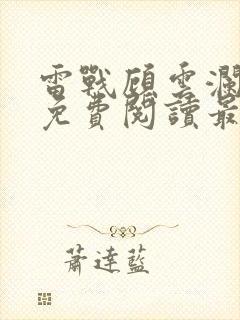 雷戰顧雲瀾
免費閱讀最
蕭達藍